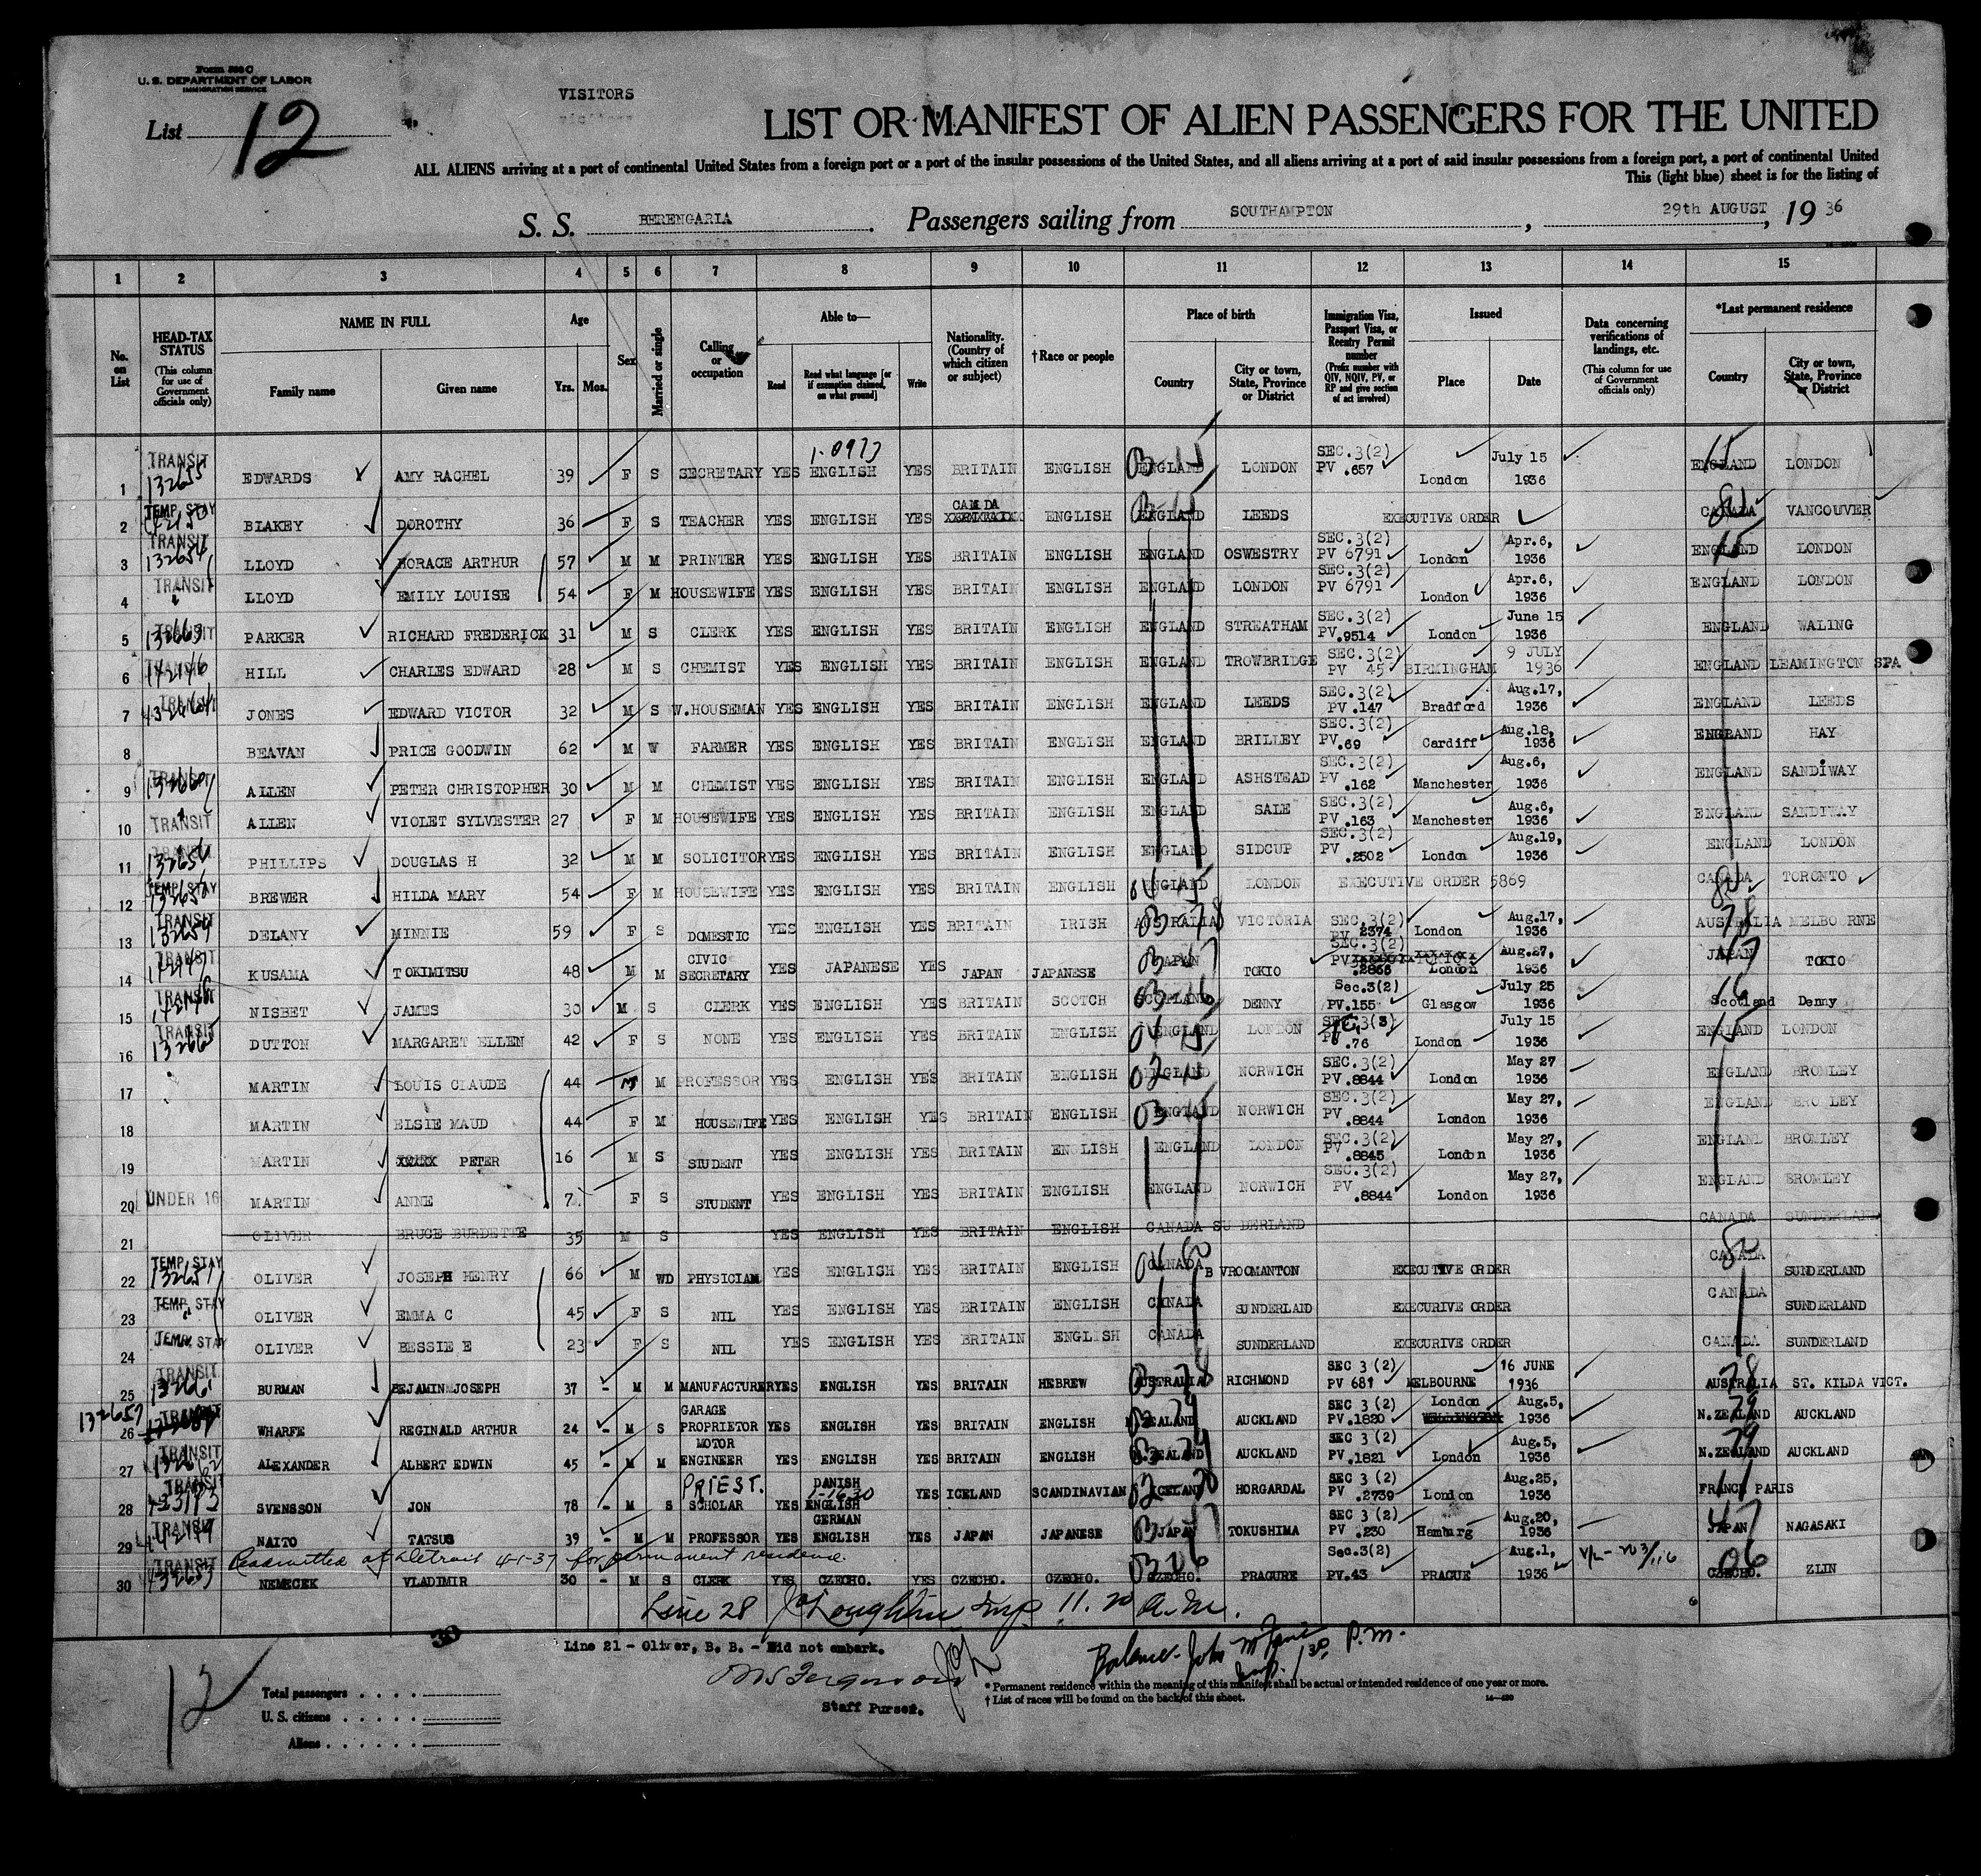 Form 500 C
U. S. DEPARTMENT OF LABOR
IMMIGRATION SERVICE
VISITORS
List 12
LIST OR MANIFEST OF ALIEN PASSENGERS FOR THE UNITED
ALL ALIENS arriving at a port of continental United States from a foreign port or a port of the insular possessions of the United States, and all aliens arriving at a port of said insular possessions from a foreign port, a port of continental United
This (light blue) sheet is for the listing of
S. S. BERENGARIA. Passengers sailing from SOUTHAMPTON, 29th AUGUST, 19 36
1 2 3 4 5 6 7 8 9 10 11 12 13 14 15
No. on List
HEAD-TAX STATUS (This column for use of Government officials only)
NAME IN FULL Family name Given name
Age Yrs. Mos.
Sex
Married or single
Calling or occupation
Able to— Read Read what language [or if exemption claimed, on what ground] Write
Nationality. (Country of which citizen or subject)
†Race or people
Place of birth Country City or town, State, Province or District
Immigration Visa, Passport Visa, or Reentry Permit number (Prefix number with QIV, NQIV, PV, or RP and give section of act involved)
Issued Place Date
Data concerning verifications of landings, etc. (This column for use of Government officials only)
*Last permanent residence Country City or town, State, Province or District
1 TRANSIT 132655 EDWARDS AMY RACHEL 39 F S SECRETARY YES ENGLISH YES BRITAIN ENGLISH ENGLAND LONDON SEC.3(2) PV .657 London July 15 1936 ENGLAND LONDON
2 TEMP. STAY BLAKEY DOROTHY 36 F S TEACHER YES ENGLISH YES CANADA ENGLISH ENGLAND LEEDS EXECUTIVE ORDER CANADA VANCOUVER
3 TRANSIT 132654 LLOYD HORACE ARTHUR 57 M M PRINTER YES ENGLISH YES BRITAIN ENGLISH ENGLAND OSWESTRY SEC.3(2) PV 6791 London Apr.6, 1936 ENGLAND LONDON
4 TRANSIT LLOYD EMILY LOUISE 54 F M HOUSEWIFE YES ENGLISH YES BRITAIN ENGLISH ENGLAND LONDON SEC.3(2) PV 6791 London Apr.6, 1936 ENGLAND LONDON
5 TRANSIT PARKER RICHARD FREDERICK 31 M S CLERK YES ENGLISH YES BRITAIN ENGLISH ENGLAND STREATHAM SEC.3(2) PV.9514 London June 15 1936 ENGLAND WALING
6 TRANSIT HILL CHARLES EDWARD 28 M S CHEMIST YES ENGLISH YES BRITAIN ENGLISH ENGLAND TROWBRIDGE SEC.3(2) PV 45 BIRMINGHAM 9 JULY 1936 ENGLAND LEAMINGTON SPA
7 TRANSIT JONES EDWARD VICTOR 32 M S W.HOUSEMAN YES ENGLISH YES BRITAIN ENGLISH ENGLAND LEEDS SEC.3(2) PV .147 Bradford Aug.17, 1936 ENGLAND LEEDS
8 BEAVAN PRICE GOODWIN 62 M W FARMER YES ENGLISH YES BRITAIN ENGLISH ENGLAND BRILLEY SEC.3(2) PV.69 Cardiff Aug.18, 1936 ENGLAND HAY
9 TRANSIT ALLEN PETER CHRISTOPHER 30 M M CHEMIST YES ENGLISH YES BRITAIN ENGLISH ENGLAND ASHSTEAD SEC.3(2) PV .162 Manchester Aug.6, 1936 ENGLAND SANDIWAY
10 TRANSIT ALLEN VIOLET SYLVESTER 27 F M HOUSEWIFE YES ENGLISH YES BRITAIN ENGLISH ENGLAND SALE SEC.3(2) PV .163 Manchester Aug.6, 1936 ENGLAND SANDIWAY
11 TRANSIT PHILLIPS DOUGLAS H 32 M M SOLICITOR YES ENGLISH YES BRITAIN ENGLISH ENGLAND SIDCUP SEC.3(2) PV .2502 London Aug.19, 1936 ENGLAND LONDON
12 TEMP. STAY BREWER HILDA MARY 54 F M HOUSEWIFE YES ENGLISH YES BRITAIN ENGLISH ENGLAND LONDON EXECUTIVE ORDER 5869 CANADA TORONTO
13 TRANSIT DELANY MINNIE 59 F S DOMESTIC YES ENGLISH YES BRITAIN IRISH AUSTRALIA VICTORIA SEC.3(2) PV 2374 London Aug.17, 1936 AUSTRALIA MELBOURNE
14 TRANSIT KUSAMA TOKIMITSU 48 M M CIVIC SECRETARY YES JAPANESE YES JAPAN JAPANESE JAPAN TOKIO SEC.3(2) PV .2866 London Aug.27, 1936 JAPAN TOKIO
15 TRANSIT NISBET JAMES 30 M S CLERK YES ENGLISH YES BRITAIN SCOTCH SCOTLAND DENNY Sec.3(2) PV.155 Glasgow July 25 1936 Scotland Denny
16 TRANSIT DUTTON MARGARET ELLEN 42 F S NONE YES ENGLISH YES BRITAIN ENGLISH ENGLAND LONDON SEC.3(3) PV .76 London July 15 1936 ENGLAND LONDON
17 MARTIN LOUIS CLAUDE 44 M M PROFESSOR YES ENGLISH YES BRITAIN ENGLISH ENGLAND NORWICH SEC.3(2) PV.8844 London May 27 1936 ENGLAND BROMLEY
18 MARTIN ELSIE MAUD 44 F M HOUSEWIFE YES ENGLISH YES BRITAIN ENGLISH ENGLAND NORWICH SEC.3(2) PV .8844 London May 27, 1936 ENGLAND BROMLEY
19 MARTIN PETER 16 M S STUDENT YES ENGLISH YES BRITAIN ENGLISH ENGLAND LONDON SEC.3(2) PV .8845 London May 27, 1936 ENGLAND BROMLEY
20 UNDER 16 MARTIN ANNE 7 F S STUDENT YES ENGLISH YES BRITAIN ENGLISH ENGLAND NORWICH SEC.3(2) PV .8844 London May 27, 1936 ENGLAND BROMLEY
21 OLIVER BRUCE BURDETTE 35 M S YES ENGLISH YES BRITAIN ENGLISH CANADA SUNDERLAND CANADA SUNDERLAND
22 TEMP. STAY OLIVER JOSEPH HENRY 66 M WD PHYSICIAN YES ENGLISH YES BRITAIN ENGLISH CANADA B VROOMANTON EXECUTIVE ORDER CANADA SUNDERLAND
23 TEMP. STAY OLIVER EMMA C 45 F S NIL YES ENGLISH YES BRITAIN ENGLISH CANADA SUNDERLAND EXECURIVE ORDER CANADA SUNDERLAND
24 TEMP. STAY OLIVER BESSIE E 23 F S NIL YES ENGLISH YES BRITAIN ENGLISH CANADA SUNDERLAND EXECURIVE ORDER CANADA SUNDERLAND
25 TRANSIT BURMAN BEJAMIN JOSEPH 37 - M M MANUFACTURER YES ENGLISH YES BRITAIN HEBREW AUSTRALIA RICHMOND SEC 3 (2) PV 681 MELBOURNE 16 JUNE 1936 AUSTRALIA ST. KILDA VICT.
26 132657 TRANSIT WHARFE REGINALD ARTHUR 24 - M S GARAGE PROPRIETOR YES ENGLISH YES BRITAIN ENGLISH N.ZEALAND AUCKLAND SEC 3 (2) PV.1820 London WELLINGTON Aug.5, 1936 N.ZEALAND AUCKLAND
27 TRANSIT ALEXANDER ALBERT EDWIN 45 - M M MOTOR ENGINEER YES ENGLISH YES BRITAIN ENGLISH N.ZEALAND AUCKLAND SEC 3 (2) PV.1821 London Aug.5, 1936 N.ZEALAND AUCKLAND
28 TRANSIT SVENSSON JON 78 - M S PRIEST. SCHOLAR YES DANISH ENGLISH YES ICELAND SCANDINAVIAN ICELAND HORGARDAL SEC 3 (2) PV .2739 London Aug.25, 1936 FRANCE PARIS
29 TRANSIT NAITO TATSUS 39 - M M PROFESSOR YES GERMAN ENGLISH YES JAPAN JAPANESE JAPAN TOKUSHIMA SEC 3 (2) PV .230 Hamburg Aug.20, 1936 JAPAN NAGASAKI
Readmitted at Detroit 4-1-37 for permanent residence.
30 TRANSIT 132653 NEMECEK VLADIMIR 30 - M S CLERK YES CZECHO. YES CZECHO. CZECHO. CZECHO. PRAGURE Sec.3(2) PV.43 PRAGUE Aug.1, 1936 CZECHO. ZLIN
Line 28 Insp 11.20 a.m.
30
Line 21 - Oliver, B. B. - Did not embark.
Balance John P.M.
Ferguson
Staff Purser.
12
Total passengers
U. S. citizens
Aliens
* Permanent residence within the meaning of this manifest shall be actual or intended residence of one year or more.
† List of races will be found on the back of this sheet.